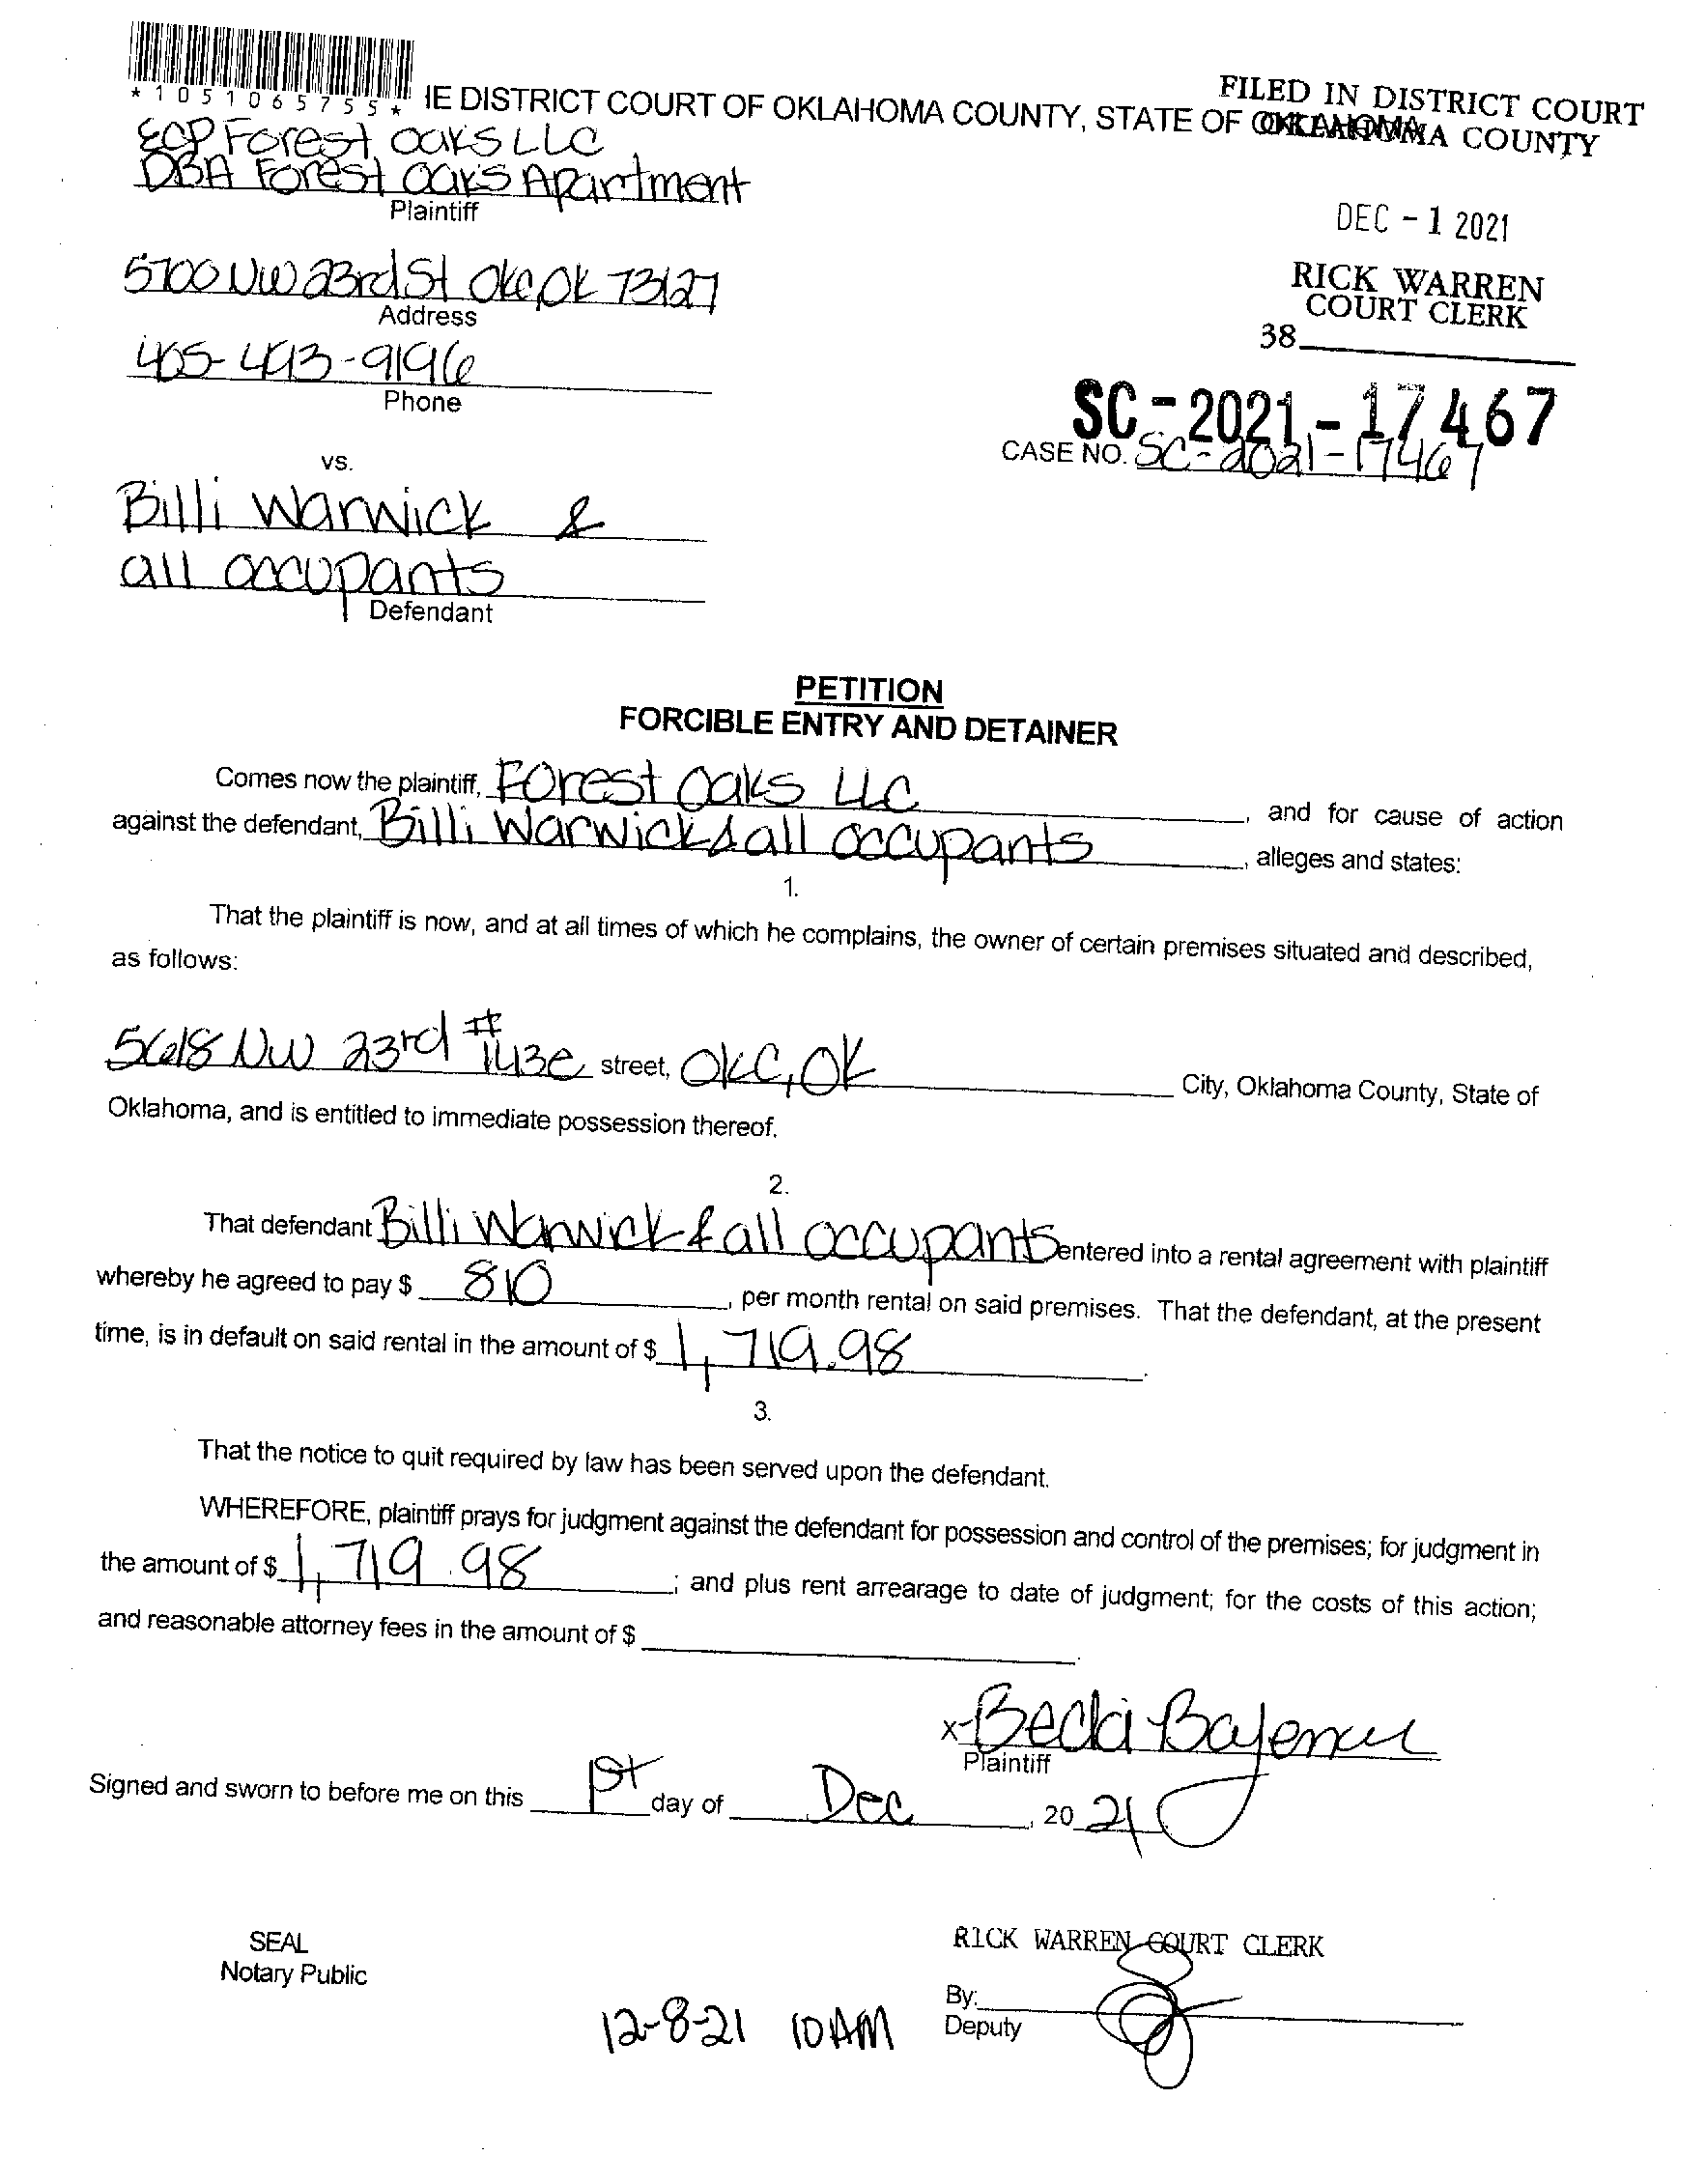 *1051065755*
IE DISTRICT COURT OF OKLAHOMA COUNTY, STATE OF OKLAHOMA
FILED IN DISTRICT COURT
OKLAHOMA COUNTY
ECP Forest Oaks LLC
DBA Forest Oaks Apartment
Plaintiff
DEC - 1 2021
5700 NW 23rd St OKC OK 73127
Address
RICK WARREN
COURT CLERK
38
405-493-9196
Phone
SC-2021-17467
CASE NO. SC-2021-17467
vs.
Billi Warwick &
all occupants
Defendant
PETITION
FORCIBLE ENTRY AND DETAINER
Comes now the plaintiff, Forest Oaks LLC, and for cause of action
against the defendant, Billi Warwick & all occupants, alleges and states:
1.
That the plaintiff is now, and at all times of which he complains, the owner of certain premises situated and described,
as follows:
5618 NW 23rd # 143e street, OKC, OK City, Oklahoma County, State of
Oklahoma, and is entitled to immediate possession thereof.
2.
That defendant Billi Warwick & all occupants entered into a rental agreement with plaintiff
whereby he agreed to pay $ 810, per month rental on said premises. That the defendant, at the present
time, is in default on said rental in the amount of $ 1,719.98.
3.
That the notice to quit required by law has been served upon the defendant.
WHEREFORE, plaintiff prays for judgment against the defendant for possession and control of the premises; for judgment in
the amount of $ 1,719.98; and plus rent arrearage to date of judgment; for the costs of this action;
and reasonable attorney fees in the amount of $ .
x Becki
Plaintiff
Signed and sworn to before me on this 1st day of Dec, 20 21
SEAL
Notary Public
RICK WARREN COURT CLERK
By:
Deputy
12-8-21 10AM